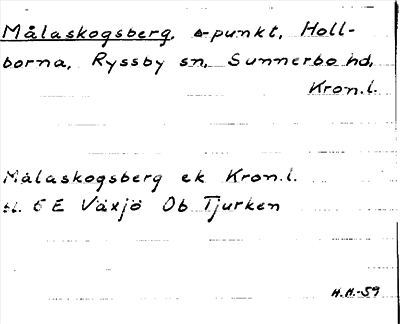 Målaskogsberg, △-punkt, Holl-
borna, Ryssby sn, Sunnerbo hd,
Kron.l.
Målaskogsberg ek Kron.l.
bl. 5 E Växjö Ob Tjurken
H.H.-59